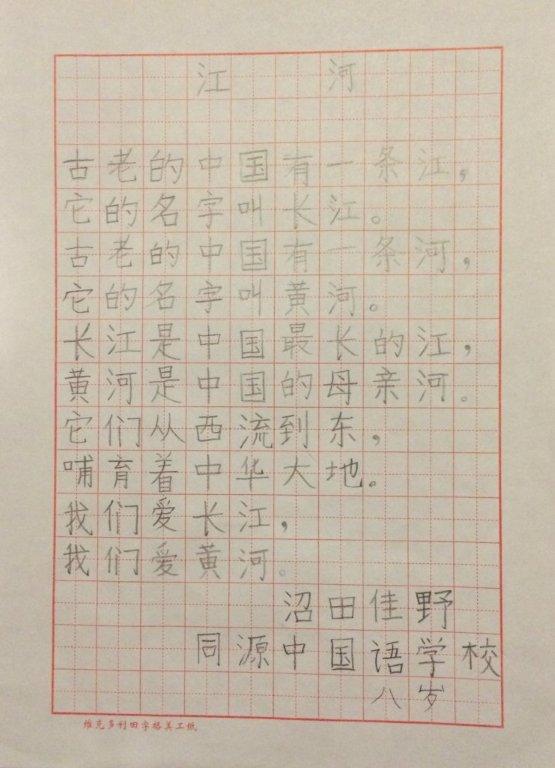 江 河
古老的中国有一条江，
它的名字叫长江。
古老的中国有一条河，
它的名字叫黄河。
长江是中国最长的江，
黄河是中国的母亲河。
它们从西流到东，
哺育着中华大地。
我们爱长江，
我们爱黄河。
沼田佳野
同源中国语学校
八岁
维克多利田字格美工纸